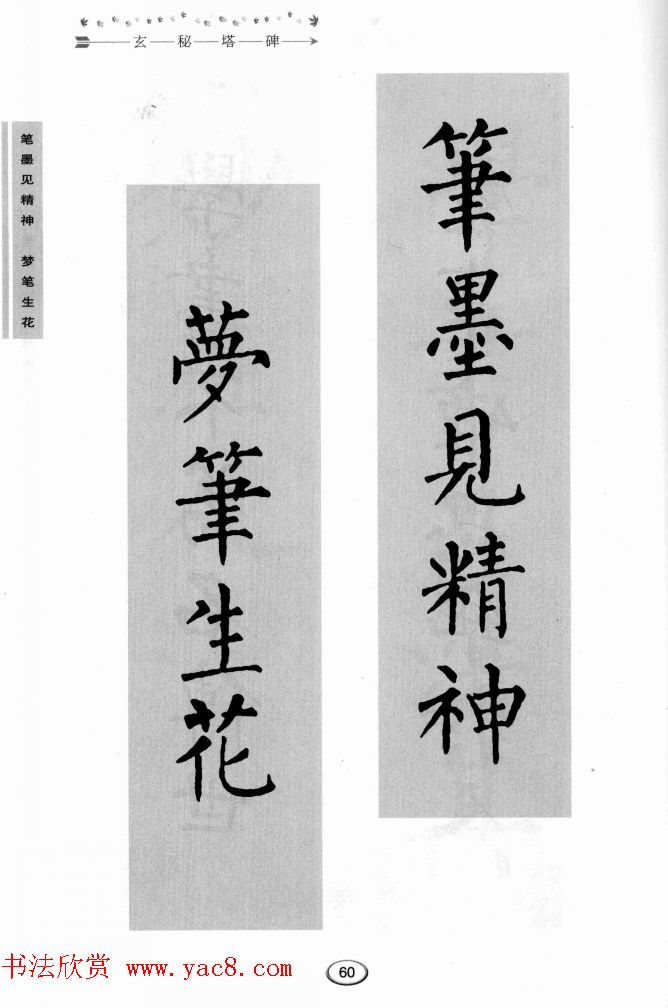 玄秘塔碑
筆墨見精神
夢筆生花
笔墨见精神 梦笔生花
书法欣赏 www.yac8.com
60